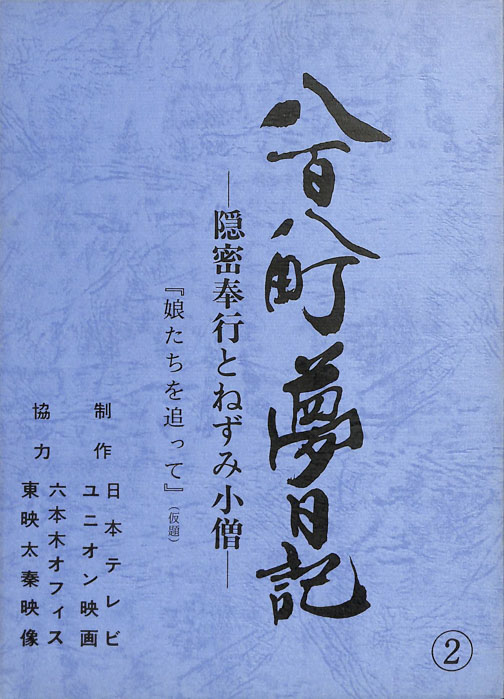 八百八町夢日記
―隠密奉行とねずみ小僧―
『娘たちを追って』(仮題)
制作 日本テレビ
ユニオン映画
協力 六本木オフィス
東映太秦映像
②